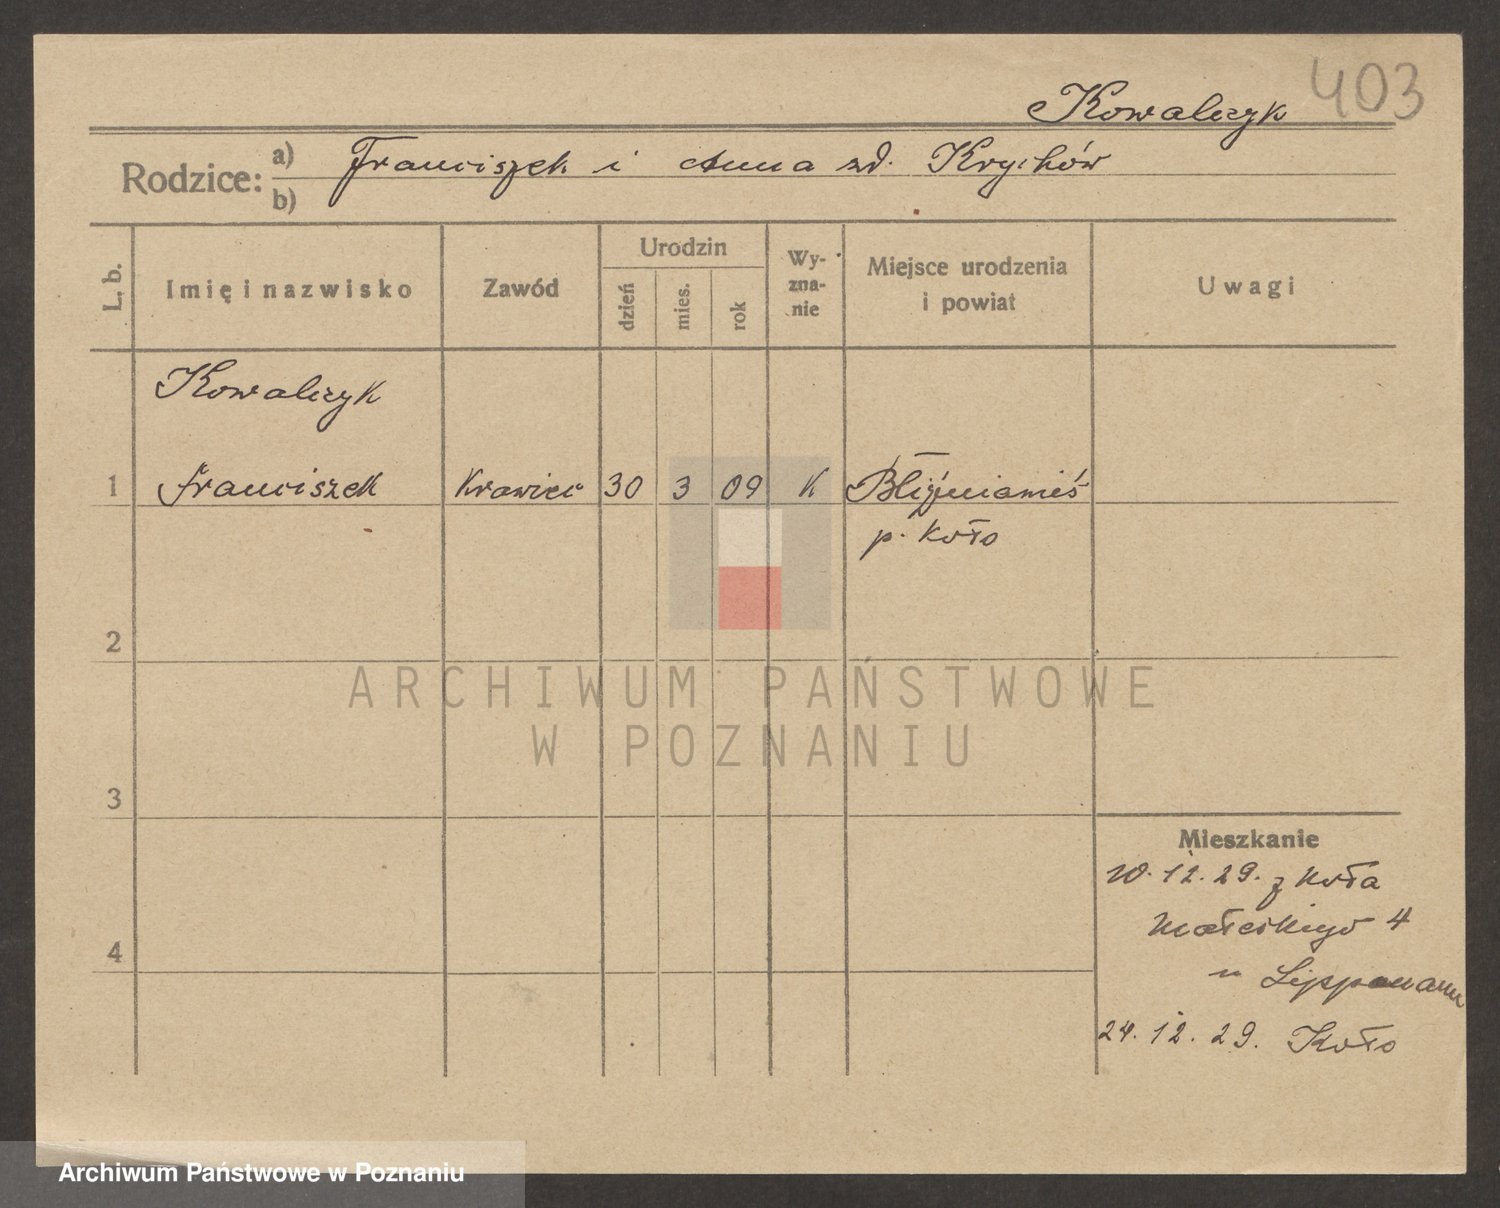 403
Kowalczyk
Rodzice: a) Franciszek i Anna zd. Krychów
b)
L. b. Imię i nazwisko Zawód Urodzin dzień mies. rok Wyznanie Miejsce urodzenia i powiat Uwagi
Kowalczyk
1 Franciszek Krawiec 30 3 09 K
p. Koło
2
ARCHIWUM PAŃSTWOWE
W POZNANIU
3
Mieszkanie
10. 12. 29. z Koła
Małeckiego 4
u
4
24. 12. 29. Koło
Archiwum Państwowe w Poznaniu